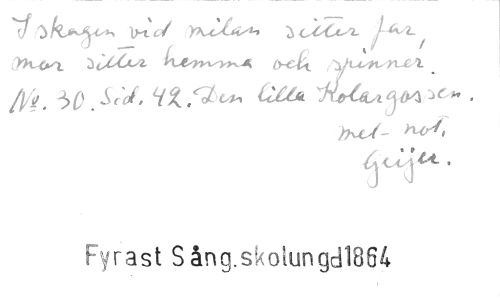 I skogen vid milan sitter far,
mor sitter hemma och spinner.
No. 30. Sid. 42. Den lilla Kolargossen.
mel- not.
Geijer.
Fyrast Sång.skolungd1864